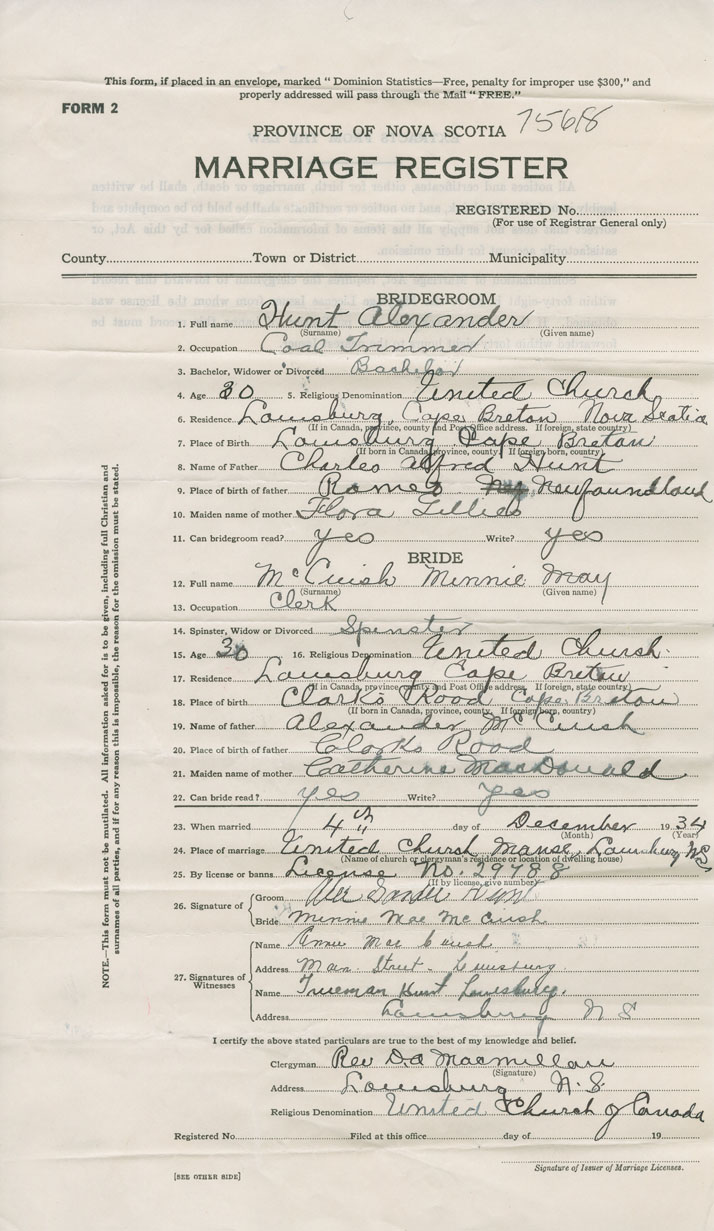 This form, if placed in an envelope, marked " Dominion Statistics—Free, penalty for improper use $300," and
properly addressed will pass through the Mail " FREE."
FORM 2
PROVINCE OF NOVA SCOTIA 7568
MARRIAGE REGISTER
REGISTERED No.
(For use of Registrar General only)
County Town or District Municipality
BRIDEGROOM
1. Full name Hunt Alexander
(Surname) (Given name)
2. Occupation Coal Trimmer
3. Bachelor, Widower or Divorced Bachelor
4. Age 30 5. Religious Denomination United Church
6. Residence Louisburg, Cape Breton Nova Scotia
(If in Canada, province, county and Post Office address. If foreign, state country)
7. Place of Birth Louisburg Cape Breton
(If born in Canada, province, county. If foreign born, country)
8. Name of Father Charles Alfred Hunt
9. Place of birth of father Rameo Newfoundland
10. Maiden name of mother Flora Lillies
11. Can bridegroom read? yes Write? yes
BRIDE
12. Full name McCuish Minnie May
(Surname) (Given name)
13. Occupation Clerk
14. Spinster, Widow or Divorced Spinster
15. Age 30 16. Religious Denomination United Church
17. Residence Louisburg Cape Breton
(If in Canada, province, county and Post Office address. If foreign, state country)
18. Place of birth Clarks Road Cape Breton
(If born in Canada, province, county. If foreign born, country)
19. Name of father Alexander McCuish
20. Place of birth of father Clarks Road
21. Maiden name of mother Catherine MacDonald
22. Can bride read? yes Write? yes
23. When married 4th day of December 1934
(Month) (Year)
24. Place of marriage United Church Manse, Louisburg NS
(Name of church or clergyman's residence or location of dwelling house)
25. By license or banns License No. 29788
(If by license, give number)
26. Signature of
Groom Alexander Hunt
Bride Minnie Mae McCuish
27. Signatures of Witnesses
Name Annie Mae Cuish
Address Main Street - Louisburg
Name Trueman Hunt Louisburg.
Address Louisburg N S
I certify the above stated particulars are true to the best of my knowledge and belief.
Clergyman Rev D.A Macmillan
(Signature)
Address Louisburg N. S.
Religious Denomination United Church of Canada
Registered No. Filed at this office day of 19
Signature of Issuer of Marriage Licenses.
[SEE OTHER SIDE]
NOTE.—This form must not be mutilated. All information asked for is to be given, including full Christian and
surnames of all parties, and if for any reason this is impossible, the reason for the omission must be stated.